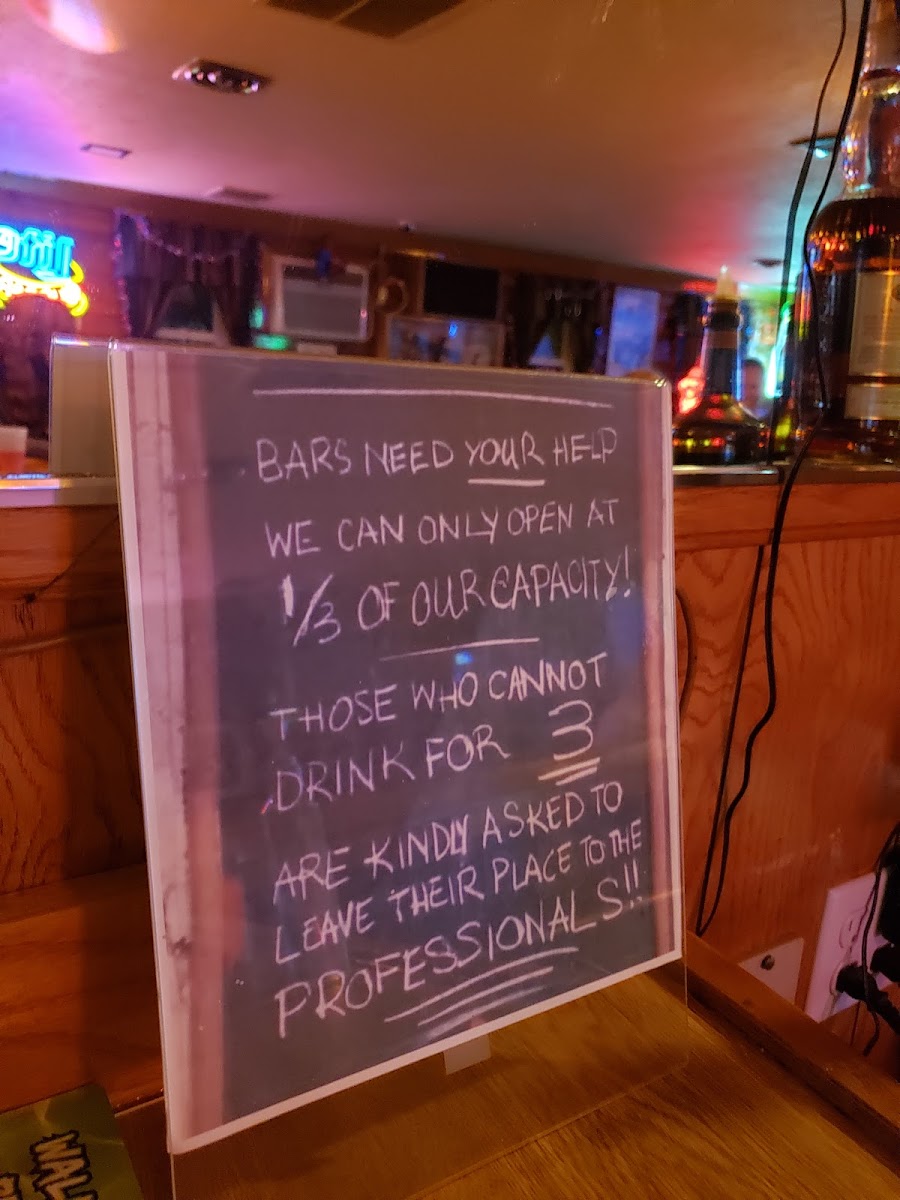 BARS NEED YOUR HELP
WE CAN ONLY OPEN AT
1/3 OF OUR CAPACITY!
THOSE WHO CANNOT
DRINK FOR 3
ARE KINDLY ASKED TO
LEAVE THEIR PLACE TO THE
PROFESSIONALS!!